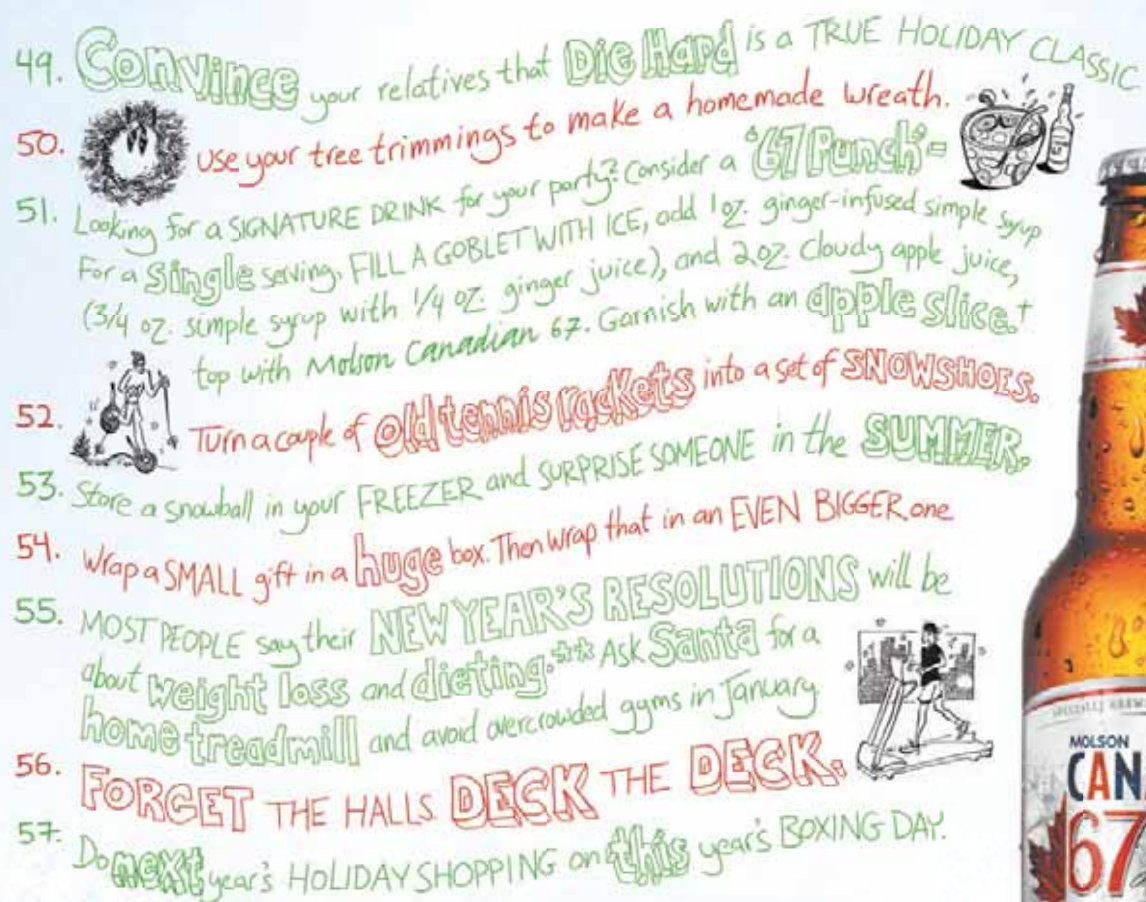 49. Convince your relatives that Die Hard is a TRUE HOLIDAY CLASSIC
50. Use your tree trimmings to make a homemade wreath.
51. Looking for a SIGNATURE DRINK for your party? Consider a '67 Punch'-
For a single serving, FILL A GOBLET WITH ICE, add 1 oz. ginger-infused simple syrup
(3/4 oz. simple syrup with 1/4 oz. ginger juice), and 2 oz. Cloudy apple juice,
top with Molson Canadian 67. Garnish with an apple slice.†
52. Turn a couple of old tennis rackets into a set of SNOWSHOES.
53. Store a snowball in your FREEZER and SURPRISE SOMEONE in the SUMMER.
54. Wrap a SMALL gift in a huge box. Then wrap that in an EVEN BIGGER one
55. MOST PEOPLE say their NEW YEAR'S RESOLUTIONS will be
about weight loss and dieting.** Ask Santa for a
home treadmill and avoid overcrowded gyms in January.
56. FORGET THE HALLS. DECK THE DECK.
57. Do next year's HOLIDAY SHOPPING on this year's BOXING DAY.
SPECIALLY
MOLSON
CAN
67